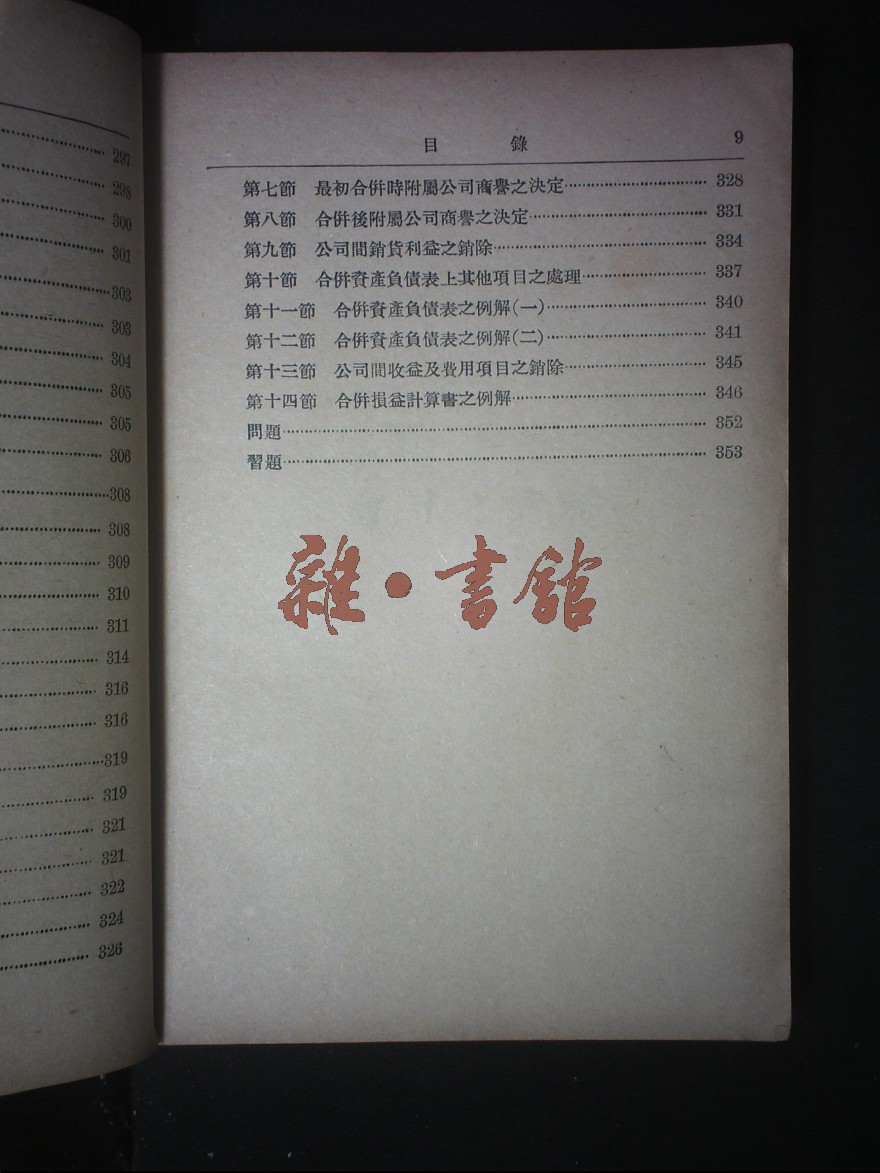 297
298
300
301
303
303
304
305
305
306
308
308
309
310
311
314
316
316
319
319
321
321
322
324
326
目錄 9
第七節 最初合併時附屬公司商譽之決定 328
第八節 合併後附屬公司商譽之決定 331
第九節 公司間銷貨利益之銷除 334
第十節 合併資產負債表上其他項目之處理 337
第十一節 合併資產負債表之例解(一) 340
第十二節 合併資產負債表之例解(二) 341
第十三節 公司間收益及費用項目之銷除 345
第十四節 合併損益計算書之例解 346
問題 352
習題 353
雜·書館